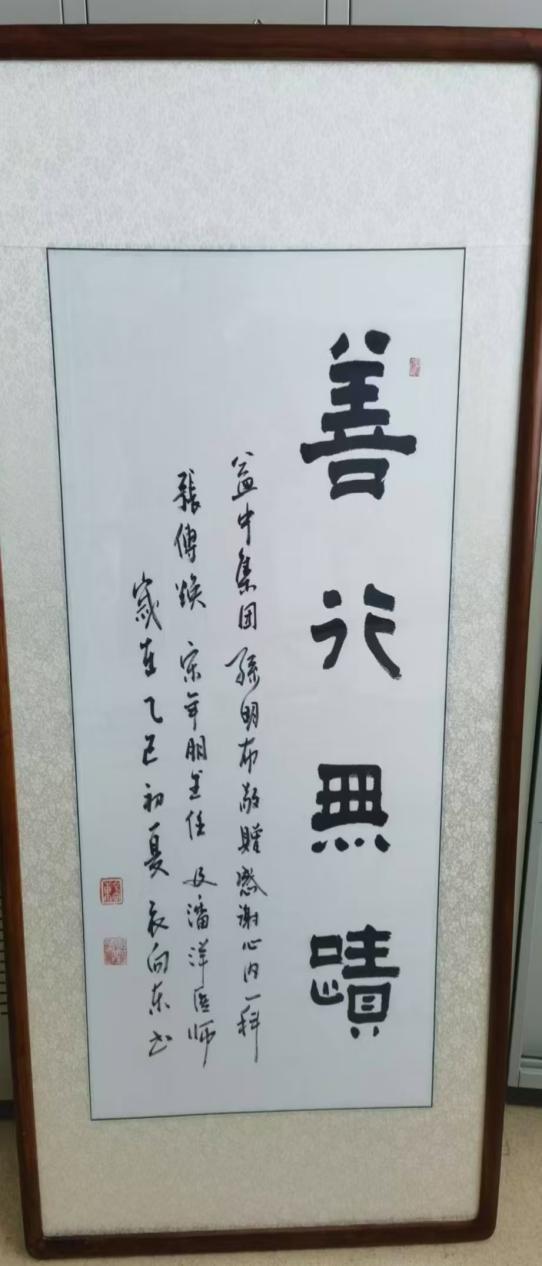 善行無蹟
益中集团孙明布敬赠感谢心内一科
張傳焕 宋年朋主任及潘洋医师
歲在乙巳初夏 袁向东书